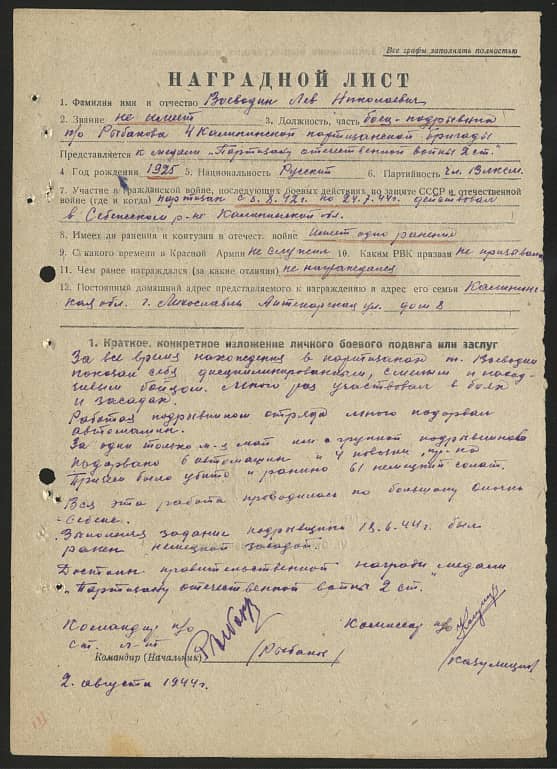 Все графы заполнять полностью
НАГРАДНОЙ ЛИСТ
1. Фамилия имя и отчество Воеводин Лев Николаевич
2. Звание не имеет 3. Должность, часть боец-подрывник
п/о Рыбакова 4 Калининской партизанской бригады
Представляется к медали „Партизану отечественной войны 2 ст."
4 Год рождения 1925 5. Национальность Русский 6. Партийность чл. Влксм.
7. Участие в гражданской войне, последующих боевых действиях по защите СССР и отечественной
войне (где и когда) партизан с 3.8.42г. по 24.7.44г. действовал
в Себежском р-не Калининской обл.
8. Имеет ли ранения и контузии в отечест. войне Имеет одно ранение
9. С какого времени в Красной Армии не служил 10. Каким РВК призван не призывался
11. Чем ранее награждался (за какие отличия) не награждался
12. Постоянный домашний адрес представляемого к награждению и адрес его семьи Калинин-
ская обл. г. Лихославль Аптекарская ул. дом 8
1. Краткое, конкретное изложение личного боевого подвига или заслуг
За все время нахождения в партизанах т. Воеводин
показал себя дисциплинированным, смелым и наход-
чивым бойцом. Много раз участвовал в боях
и засадах.
Работая подрывником отряда много подорвал
автомашин.
За один только м-ц май им с группой подрывников
подорвано 6 автомашин и 4 повозки пр-ка
Причем было убито и ранено 61 немецких солдат.
Вся эта работа проводилась по большаку Опочка
-Себеж.
Выполняя задание подрывника 13.6.44г. был
ранен немецкой засадой
Достоин правительственной награды медали
„Партизану отечественной войны 2 ст."
Командир п/о
ст. л-нт
Комиссар п/о
Командир (Начальник)
(Рыбаков)
2 августа 1944г.